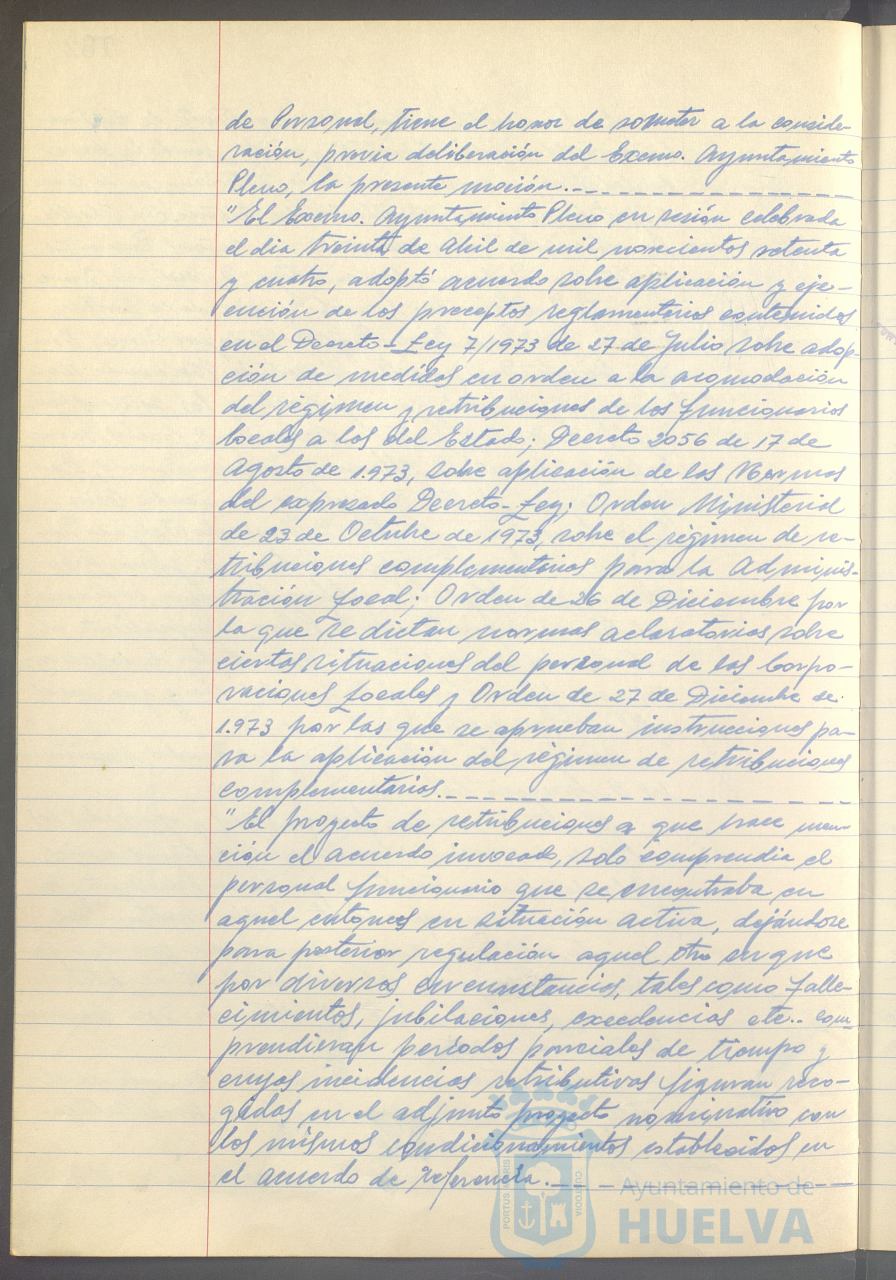 de Personal, tiene el honor de someter a la conside-
ración, previa deliberación del Excmo. Ayuntamiento
Pleno, la presente moción.-----------
"El Excmo. Ayuntamiento Pleno en sesión celebrada
el dia treinta de Abril de mil novecientos setenta
y cuatro, adoptó acuerdo sobre aplicación y eje-
cución de los preceptos reglamentarios contenidos
en el Decreto-Ley 7/1973 de 27 de Julio sobre adop-
ción de medidas en orden a la acomodación
del régimen y retribuciones de los funcionarios
locales a los del Estado; Decreto 2056 de 17 de
Agosto de 1.973, sobre aplicación de las Normas
del expresado Decreto-Ley; Orden Ministerial
de 23 de Octubre de 1973, sobre el régimen de re-
tribuciones complementarias para la Adminis-
tración Local; Orden de 26 de Diciembre por
la que se dictan normas aclaratorias sobre
ciertas situaciones del personal de las Corpo-
raciones Locales y Orden de 27 de Diciembre de
1.973 por las que se aprueban instrucciones pa-
ra la aplicación del régimen de retribuciones
complementarias.---------------
"El proyecto de retribuciones a que hace men-
ción el acuerdo invocado, solo comprendia el
personal funcionario que se encontraba en
aquel entonces en situación activa, dejándose
para posterior regulación aquel otro en que
por diversas circunstancias, tales como falle-
cimientos, jubilaciones, excedencias etc.. com-
prendieran periodos parciales de tiempo y
cuyas incidencias retributivas figuran reco-
gidas en el adjunto proyecto nominativo con
los mismos condicionamientos establecidos en
el acuerdo de referencia.-----------
PORTUS MARIS
CUSTODIA
Ayuntamiento de
HUELVA